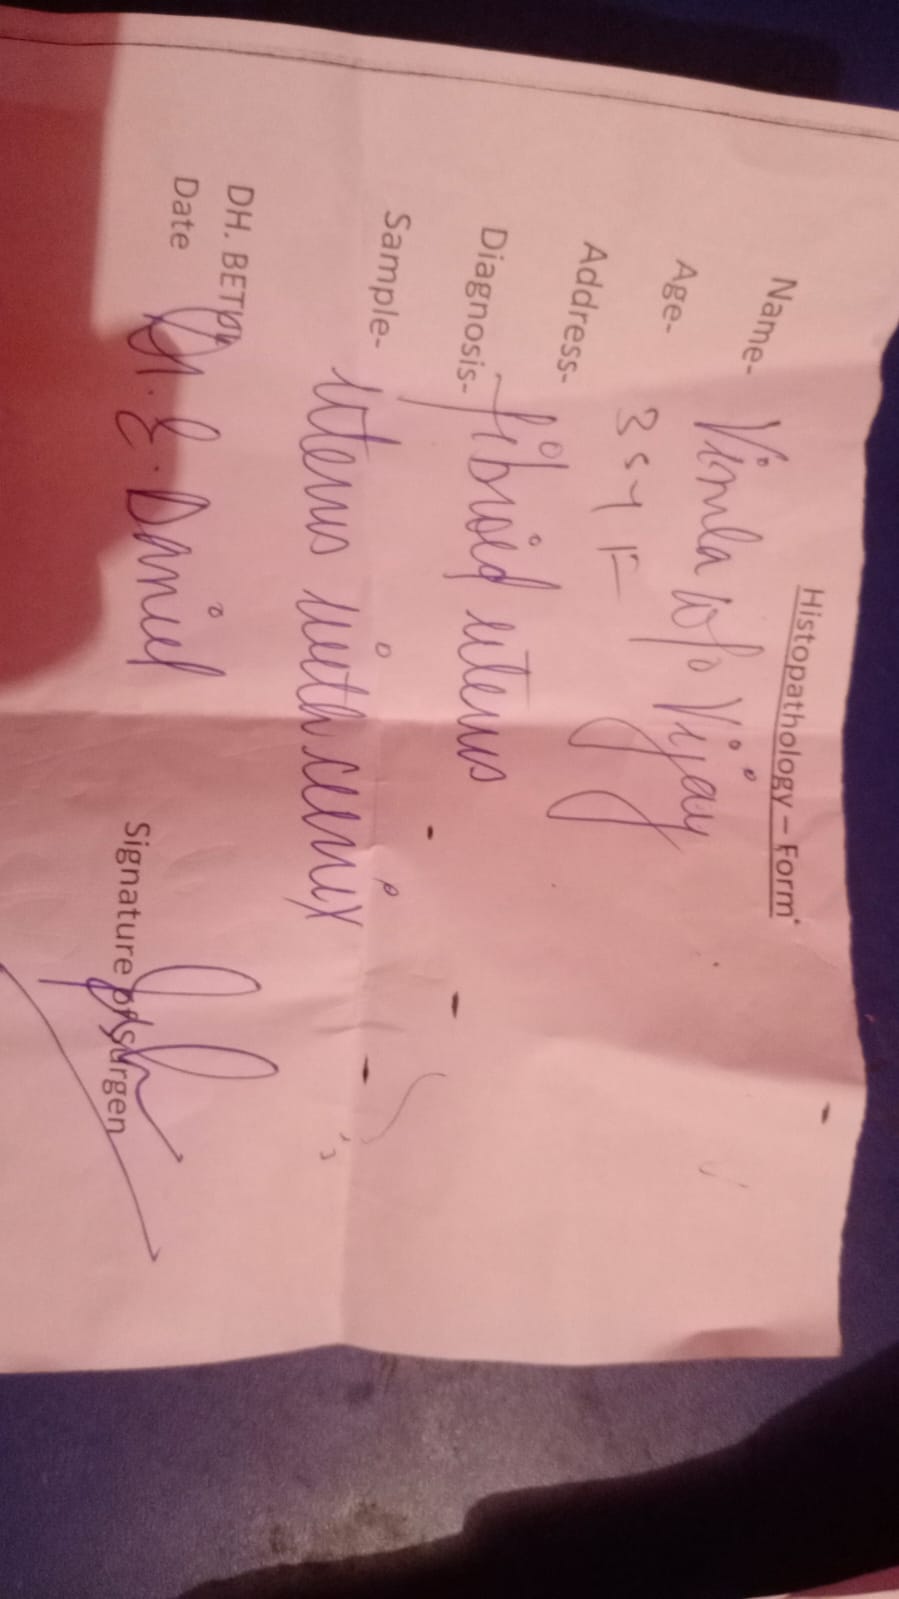 Histopathology – Form
Name- Vimla w/o Vijay
Age- 35 y F
Address-
Diagnosis- fibroid uterus
Sample- uterus with cervix
DH. BETUL
Date Dr. E. Daniel
Signature of surgen